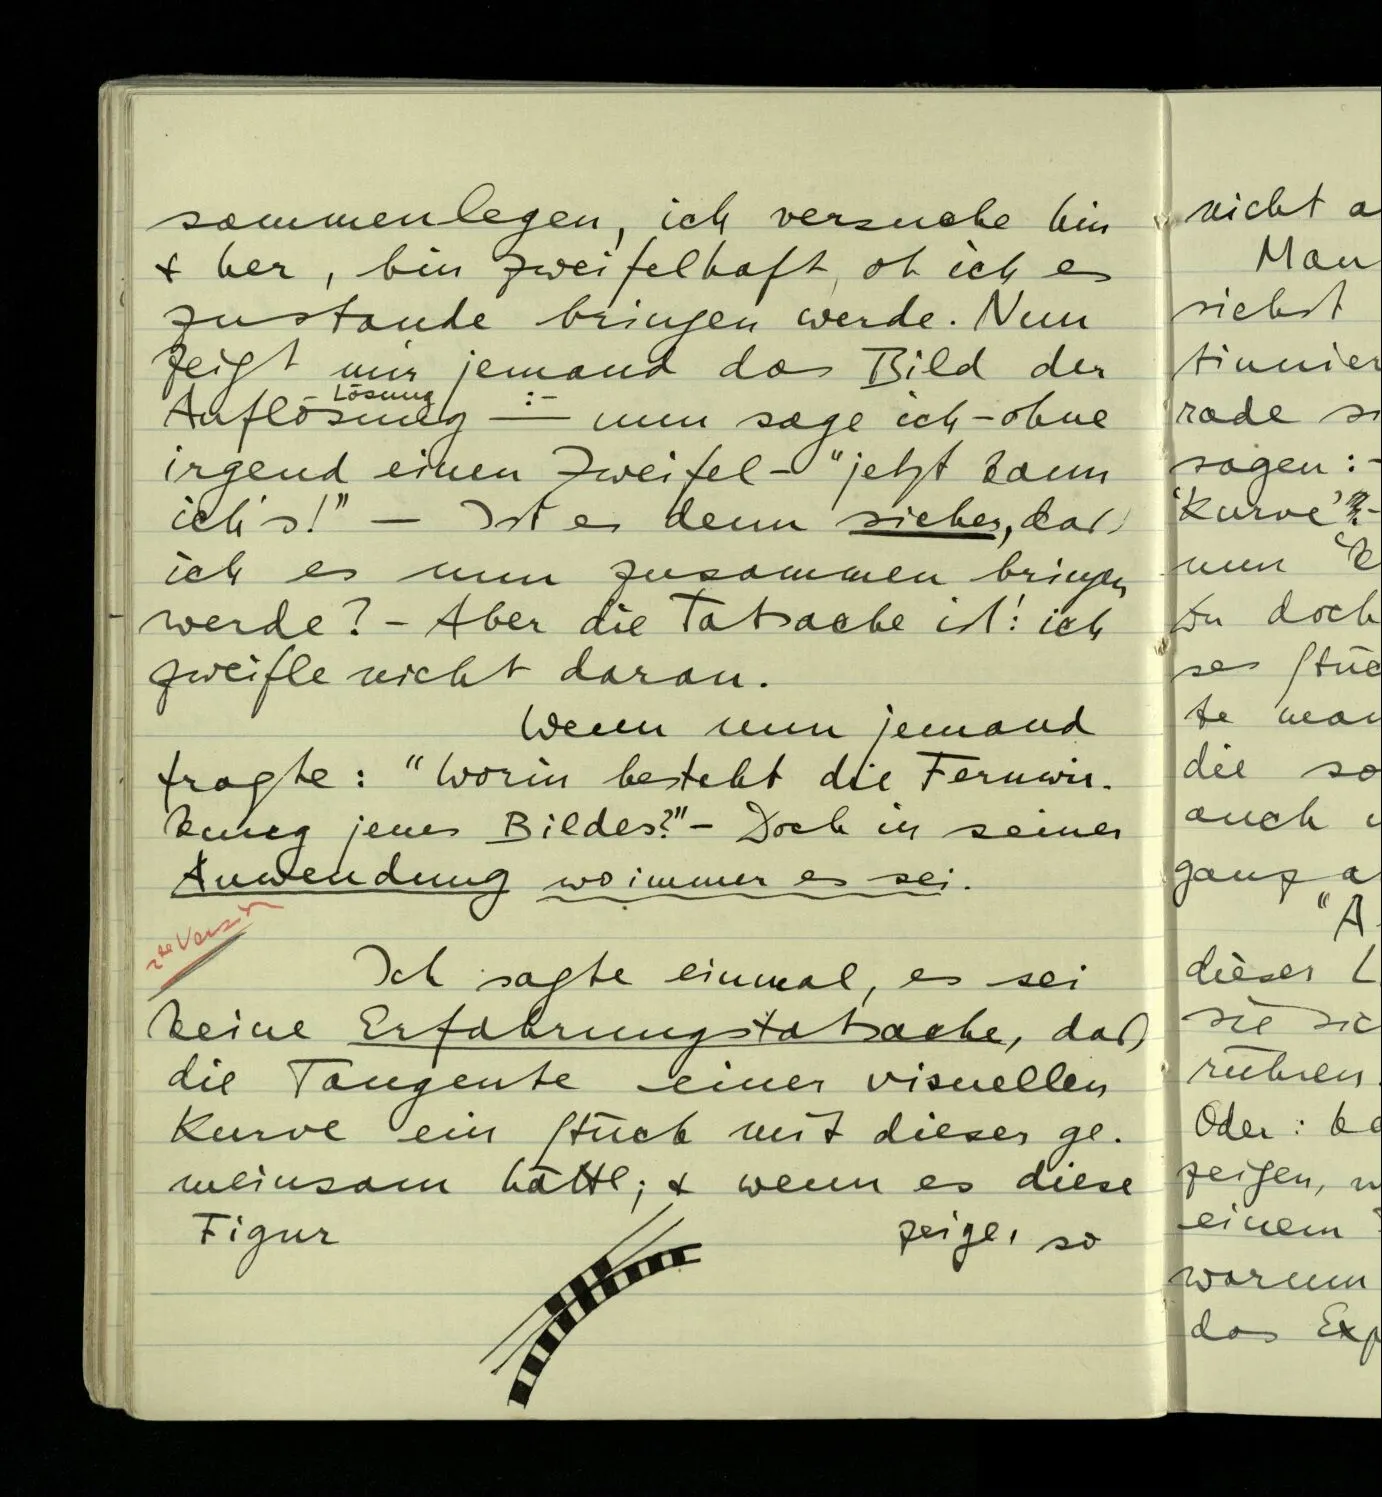 sammenlegen, ich versuche hin
& her, bin zweifelhaft, ob ich es
zustande bringen werde. Nun
zeigt mir jemand das Bild der
Lösung
Auflösung :– nun sage ich – ohne
irgend einen Zweifel – "jetzt kann
ich's!" – Ist es denn sicher, daß
ich es nun zusammen bringen
werde? – Aber die Tatsache ist: ich
zweifle nicht daran.
Wenn nun jemand
fragte: "Worin besteht die Fernwir-
kung jenes Bildes?" – Doch in seiner
Anwendung wo immer es sei.
2te Version
Ich sagte einmal, es sei
keine Erfahrungstatsache, daß
die Tangente einer visuellen
Kurve ein Stück mit dieser ge-
meinsam hätte; & wenn es diese
Figur zeige, so
nicht a
Man
siehst
tinuier
rade
sagen:–
'Kurve'
nun
Du doch
ses Stüc
te man
die so
auch
ganz a
"A
dieser L
sie sic
rühren.
Oder: be
zeigen, w
einem
warum
das Exp